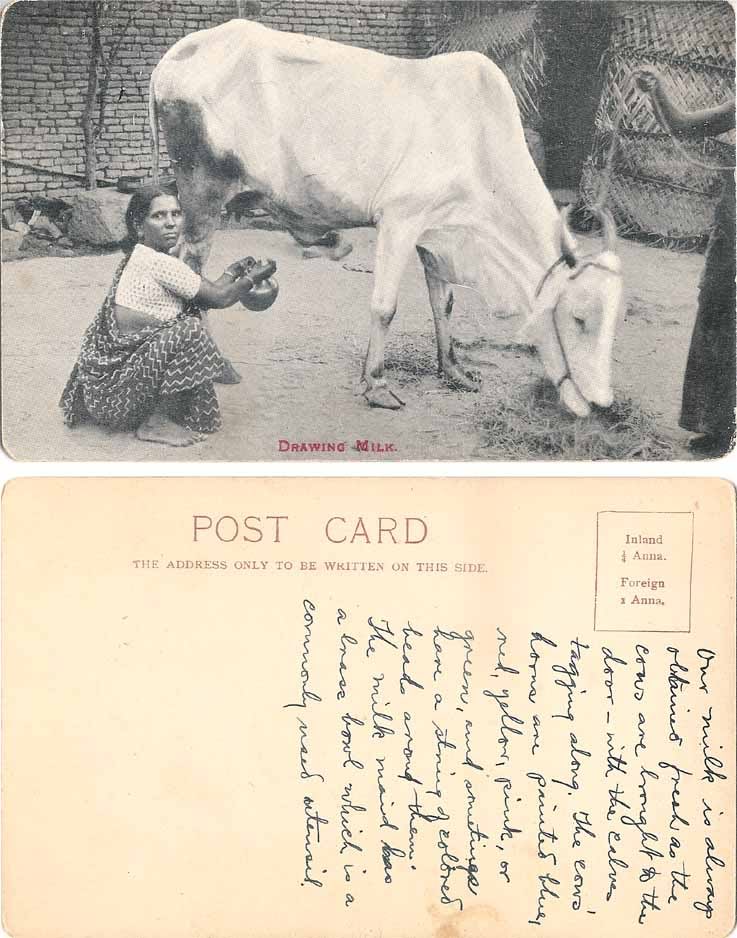 DRAWING MILK.
POST CARD
THE ADDRESS ONLY TO BE WRITTEN ON THIS SIDE.
Inland
¼ Anna.
Foreign
1 Anna.
Our milk is always
obtained fresh as the
cows are brought to the
door – with the calves
tagging along. The cows'
horns are painted blue,
red, yellow, pink, or
green, and sometimes
have a string of colored
beads around them.
The milk maid has
a brass bowl which is a
commonly used utensil.